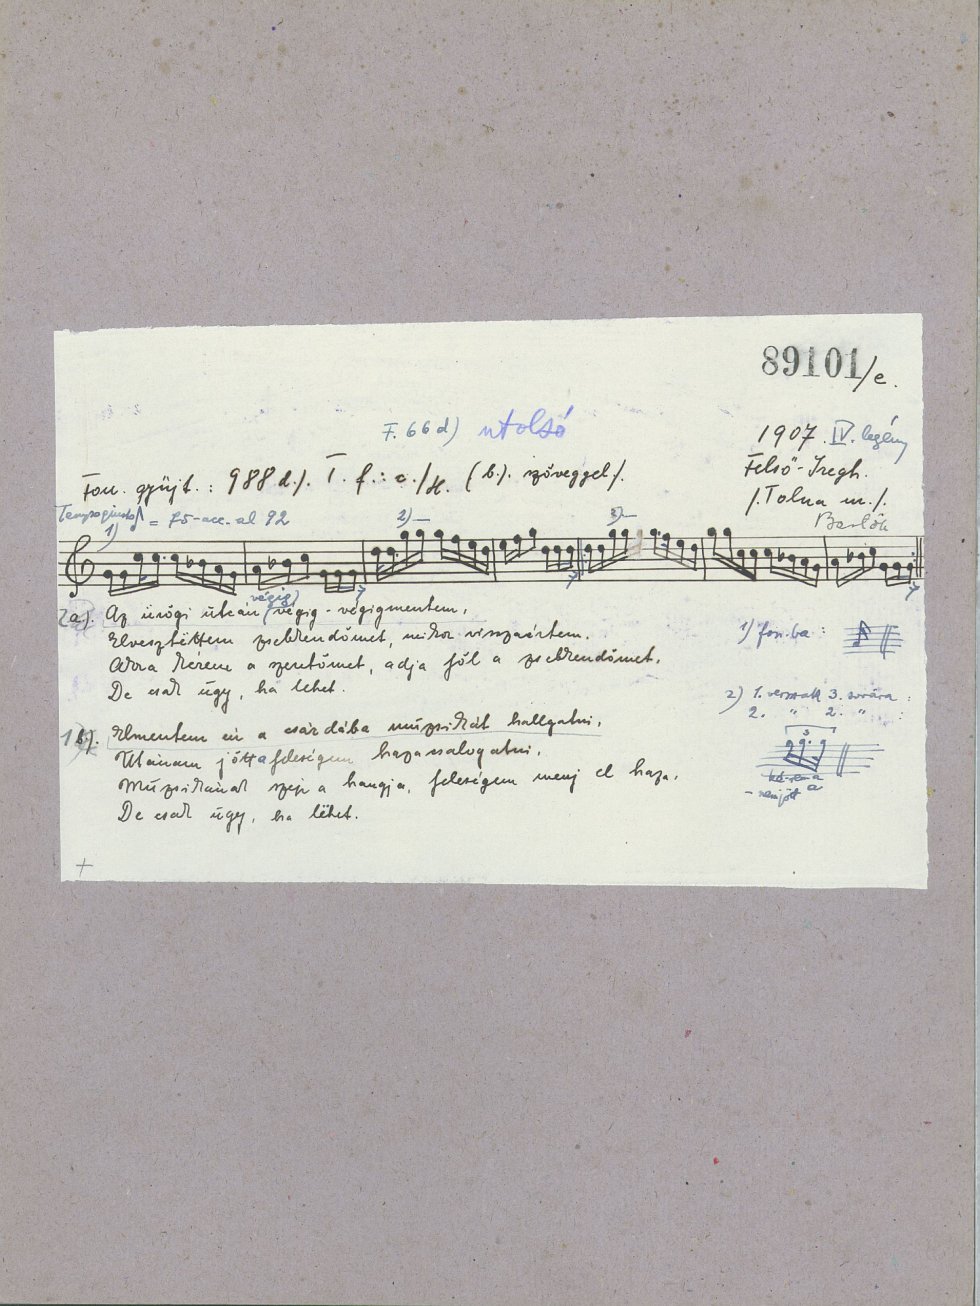 89101/c.
F. 66 d) utolsó
1907. IV. legény
Fon. gyüjt.: 988 d./. T. f.: c./4. (b.). szöveggel/.
Felső-Iregh.
/. Tolna m./.
Bartók
Tempo giusto ♪ = 75-acc. al 92
1) 2) 3)
végig
2 a). Az ürögi utcán végig-végigmentem,
Elvesztettem zsebkendőmet, mikor visszaértem.
Arra kérem a szeretőmet, adja föl a zsebkendőmet,
De csak úgy, ha lehet.
1) fon.ba :
2) 1. verssz. 3. sorára :
2. " 2. " :
3
1 b). Elmentem én a csárdába múzsikát hallgatni,
Utánam jött a feleségem hazacsalogatni,
Múzsikának szép a hangja, feleségem menj el haza,
De csak úgy, ha lëhet.
+